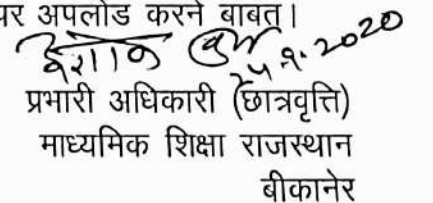 पर अपलोड करने बाबत।
24.9.2020
प्रभारी अधिकारी (छात्रवृत्ति)
माध्यमिक शिक्षा राजस्थान
बीकानेर